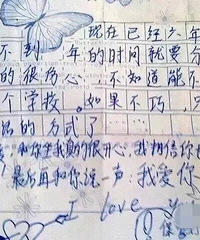 现在已经六年
不到 年的时间就要分
的很伤心,不知道能不
个学校。如果不巧,
络的方式了
和你坐我真的很开心,我相信你也
最后再和你说一声:我爱你
I love y